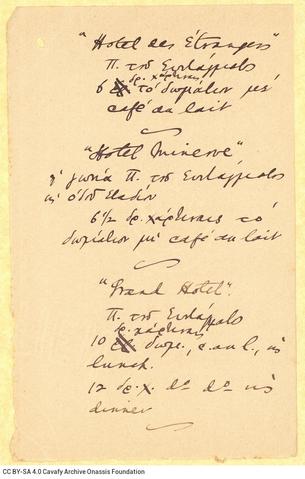 "Hotel des Etrangers"
Π. του Συντάγματος
δρ. χάρτιναις
6 το δωμάτιον με
café au lait
"Hotel Minerve"
γωνία Π. του Συντάγματος
κ' οδού Σταδίου
6 1/2 δρ. χάρτιναις το
δωμάτιον με café au lait
"Grand Hotel".
Π. του Συντάγματος
δρ. χάρτιναις
10 δωμ., c. au l., κ'
lunch.
12 δρ. χ. do do κ'
dinner
CC BY-SA 4.0 Cavafy Archive Onassis Foundation